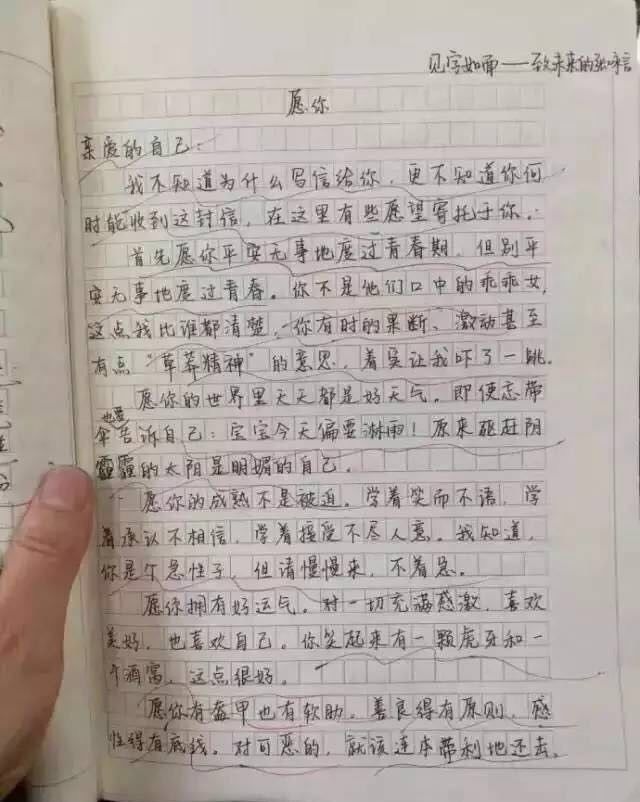 见字如面——致未来的张咏言
愿你
亲爱的自己：
我不知道为什么写信给你，更不知道你何
时能收到这封信，在这里有些愿望寄托于你。
首先愿你平安无事地度过青春期，但别平
安无事地度过青春。你不是他们口中的乖乖女，
这点我比谁都清楚，你有时的果断、激动甚至
有点“草莽精神”的意思，着实让我吓了一跳。
愿你的世界里天天都是好天气。即使忘带
伞也要告诉自己：宝宝今天偏要淋雨！原来驱赶阴
霾的太阳是明媚的自己。
愿你的成熟不是被迫。学着笑而不语，学
着承认不相信，学着接受不尽人意。我知道，
你是个急性子，但请慢慢来，不着急。
愿你拥有好运气。对一切充满感激，喜欢
美好，也喜欢自己。你笑起来有一颗虎牙和一
个酒窝，这点很好。
愿你有盔甲也有软肋。善良得有原则，感
性得有底线。对可恶的，就该连本带利地还去。